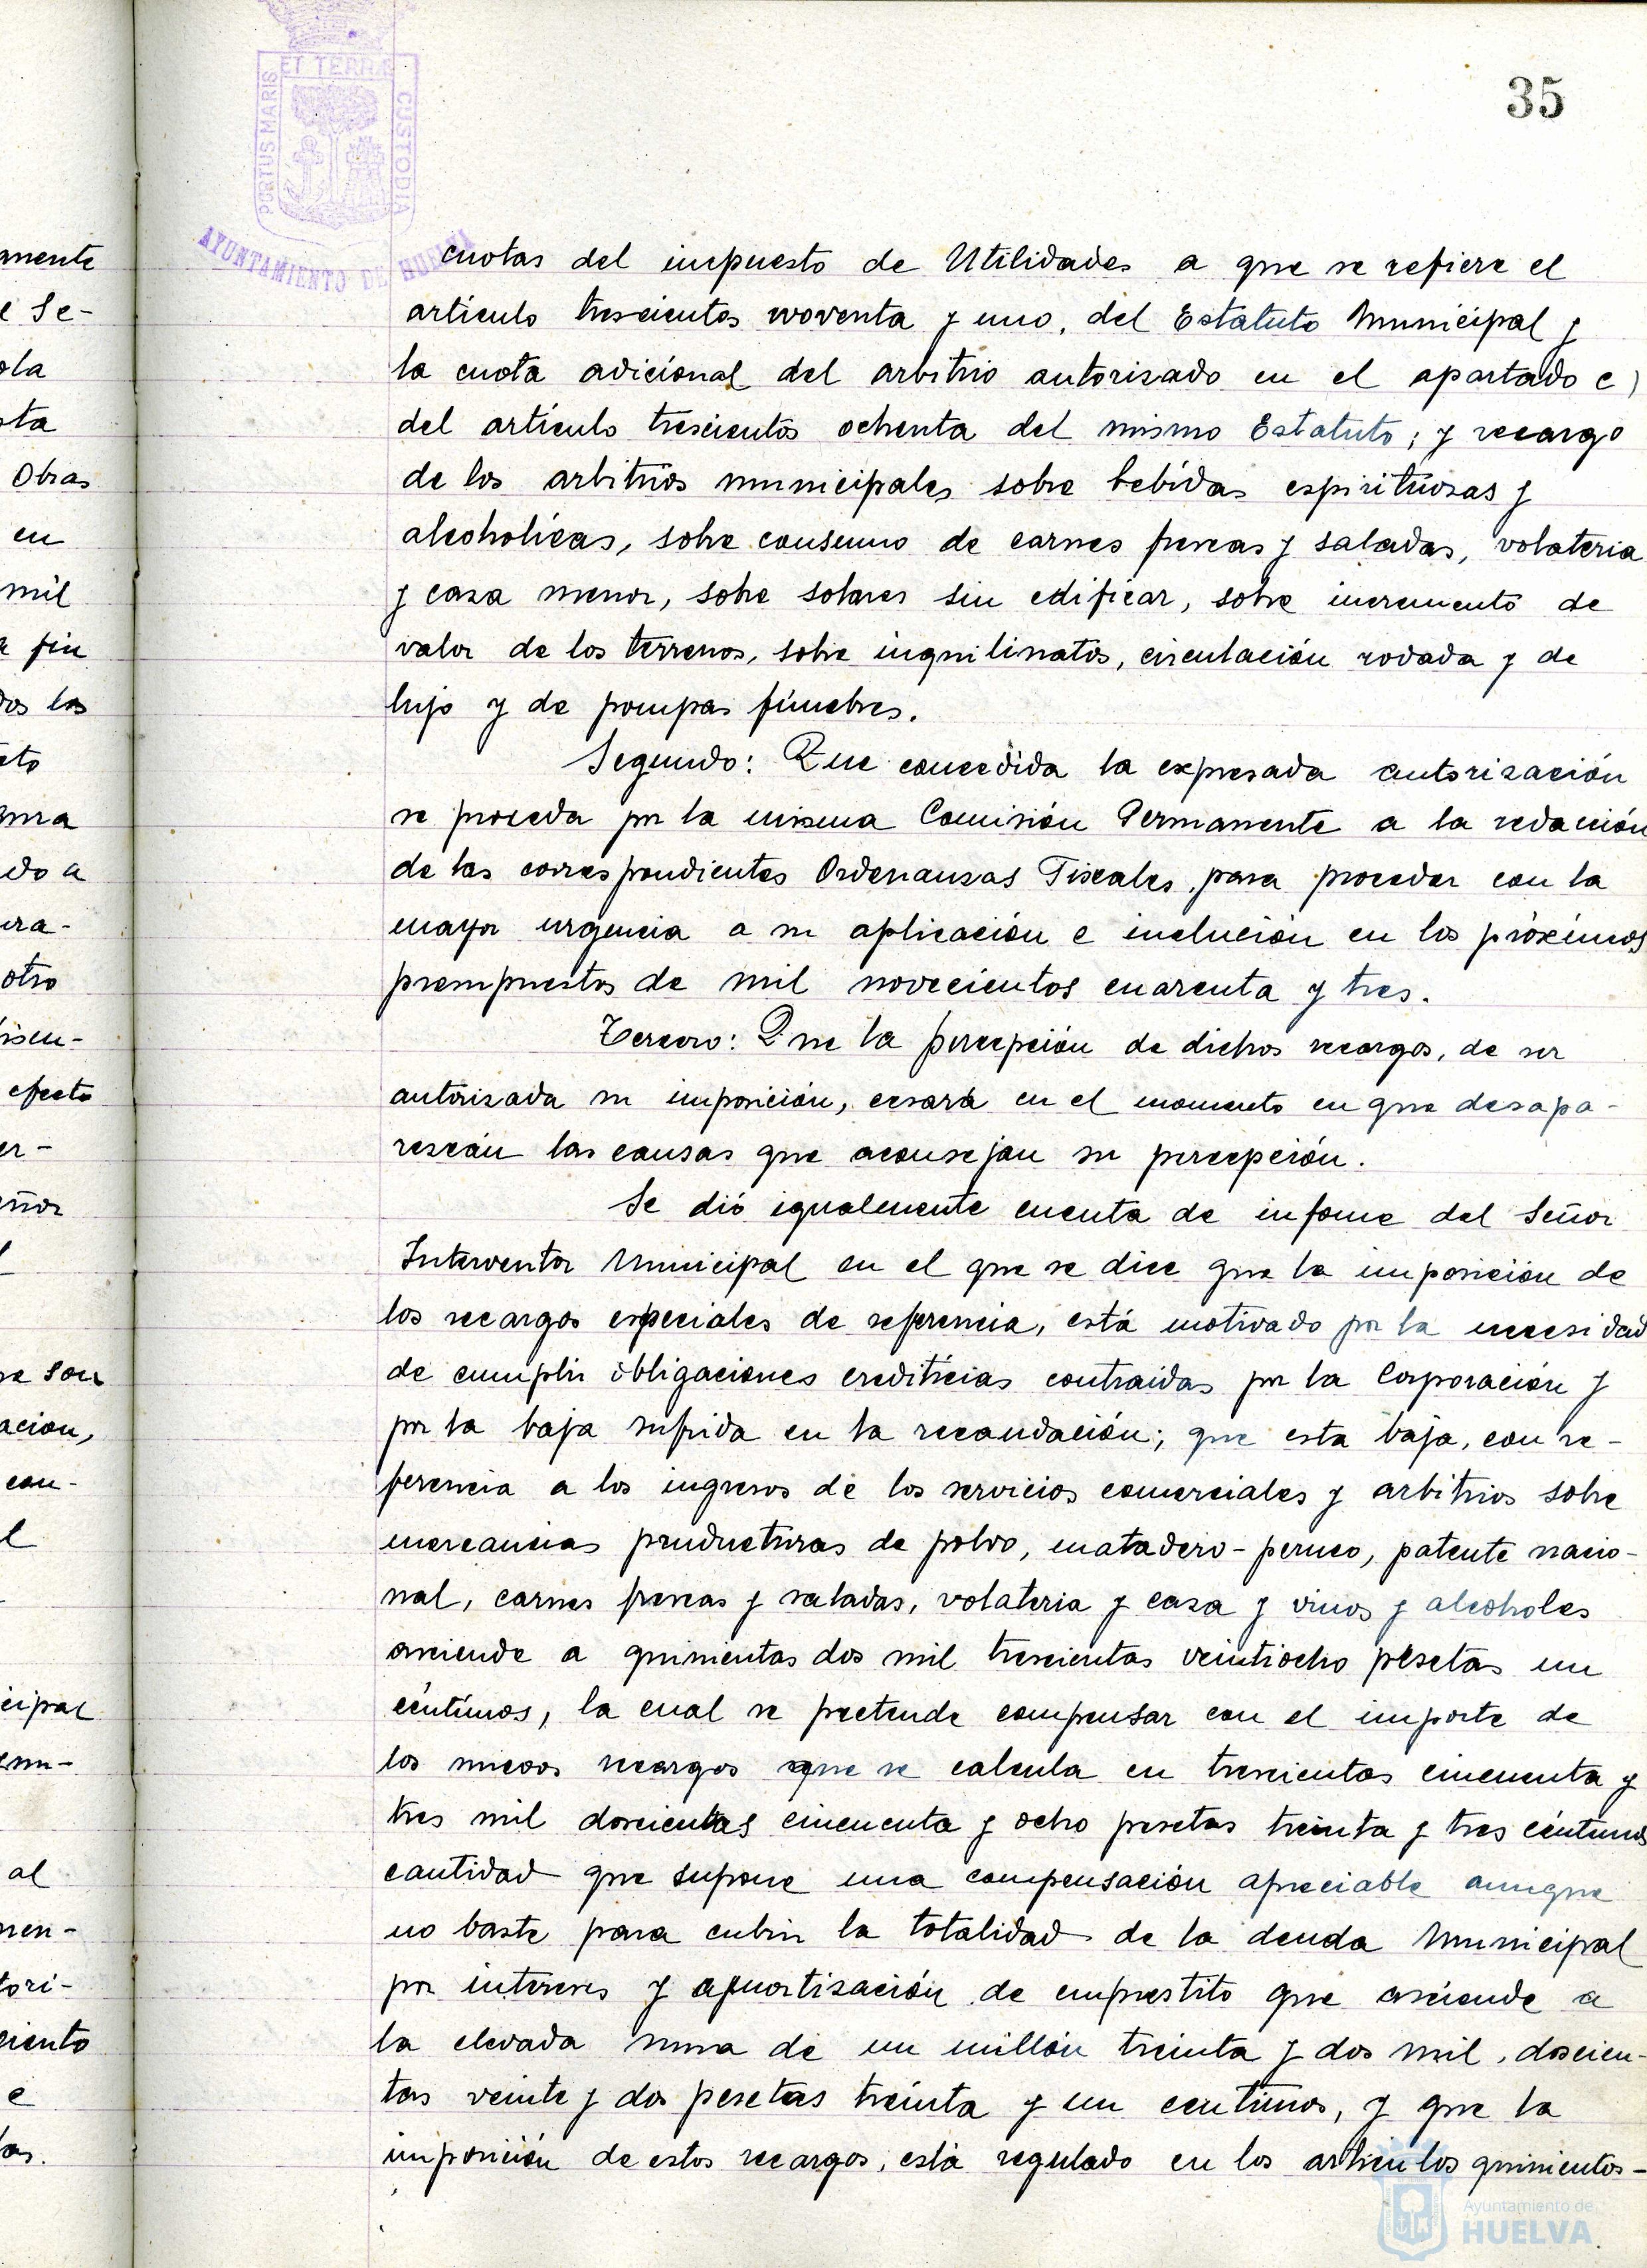 35
PORTUS MARIS ET TERRÆ CUSTODIA
AYUNTAMIENTO DE HUELVA
cuotas del impuesto de Utilidades a que se refiere el
artículo trescientos noventa y uno, del Estatuto Municipal y
la cuota adicional del arbitrio autorizado en el apartado c)
del artículo trescientos ochenta del mismo Estatuto; y recargo
de los arbitrios municipales sobre bebidas espirituosas y
alcoholicas, sobre consumo de carnes frescas y saladas, volateria
y caza menor, sobre solares sin edificar, sobre incremento de
valor de los terrenos, sobre inquilinatos, circulación rodada y de
lujo y de pompas fúnebres.
Segundo: Que concedida la expresada autorización
se proceda por la misma Comisión Permanente a la redacción
de las correspondientes Ordenanzas Fiscales, para proceder con la
mayor urgencia a su aplicación e inclución en los próximos
presupuestos de mil novecientos cuarenta y tres.
Tercero: Que la percepción de dichos recargos, de ser
autorizada su imposición, cesará en el momento en que desapa-
rescán las causas que aconsejan su percepción.
Se dió igualmente cuenta de informe del Señor
Interventor Municipal en el que se dice que la imposición de
los recargos especiales de referencia, está motivado por la necesidad
de cumplir obligaciones crediticias contraidas por la Corporación y
por la baja sufrida en la recaudación; que esta baja, con re-
ferencia a los ingresos de los servicios comerciales y arbitrios sobre
mercancias pruducturas de polvo, matadero-perneo, patente nacio-
nal, carnes frescas y saladas, volateria y caza y vinos y alcoholes
asciende a quinientas dos mil trescientas veintiocho pesetas un
céntimos, la cual se pretende compensar con el importe de
los nuevos recargos que se calcula en trescientas cincuenta y
tres mil doscientas cincuenta y ocho pesetas treinta y tres céntimos
cantidad que supone una compensación apreciable aunque
no baste para cubrir la totalidad de la deuda Municipal
por intereses y amortización de emprestito que asciende a
la elevada suma de un millón treinta y dos mil, doscien-
tas veinte y dos pesetas treinta y un centimos, y que la
imposición de estos recargos, está regulado en los artículos quinientos-
Ayuntamiento de
HUELVA